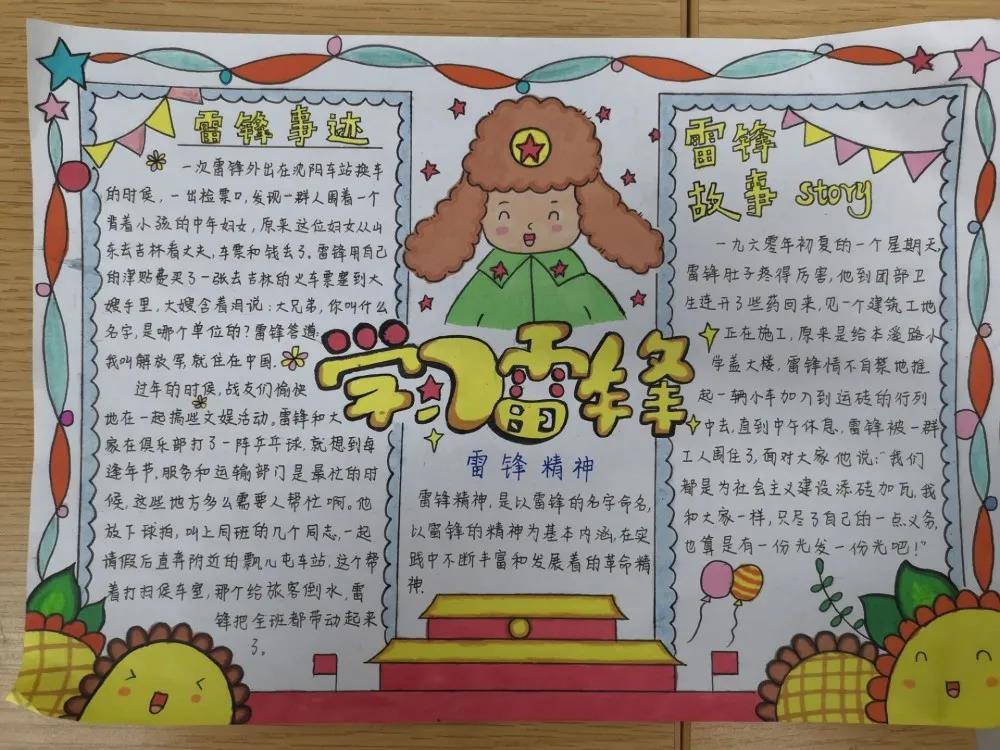 雷锋事迹
一次雷锋外出在沈阳车站换车
的时候，一出检票口，发现一群人围着一个
背着小孩的中年妇女，原来这位妇女从山
东去吉林看丈夫，车票和钱丢了。雷锋用自己
的津贴费买了一张去吉林的火车票塞到大
嫂手里，大嫂含着泪说：大兄弟，你叫什么
名字，是哪个单位的？雷锋答道：
我叫解放军，就住在中国。
过年的时候，战友们愉快
地在一起搞些文娱活动。雷锋和大
家在俱乐部打了一阵乒乓球，就想到每
逢年节，服务和运输部门是最忙的时
候，这些地方多么需要人帮忙啊。他
放下球拍，叫上同班的几个同志，一起
请假后直奔附近的瓢儿屯车站，这个帮
着打扫候车室，那个给旅客倒水，雷
锋把全班都带动起来
了。
学习雷锋
雷锋精神
雷锋精神，是以雷锋的名字命名，
以雷锋的精神为基本内涵，在实
践中不断丰富和发展着的革命精
神.
雷锋
故事 story
一九六零年初夏的一个星期天，
雷锋肚子疼得厉害，他到团部卫
生连开了些药回来，见一个建筑工地
正在施工，原来是给本溪路小
学盖大楼，雷锋情不自禁地推
起一辆小车加入到运砖的行列
中去，直到中午休息，雷锋被一群
工人围住了，面对大家他说：“我们
都是为社会主义建设添砖加瓦，我
和大家一样，只尽了自己的一点义务，
也算是有一份光发一份光吧！”